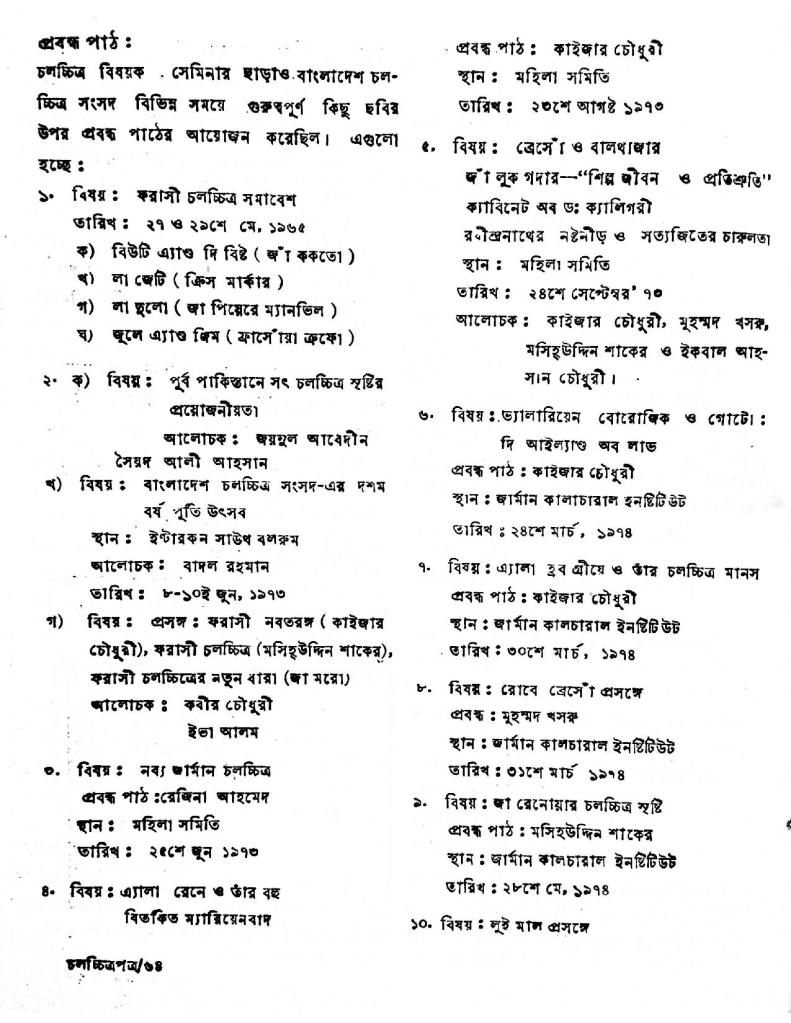 প্রবন্ধ পাঠ :
চলচ্চিত্র বিষয়ক সেমিনার ছাড়াও বাংলাদেশ চল-
চ্চিত্র সংসদ বিভিন্ন সময়ে গুরুত্বপূর্ণ কিছু ছবির
উপর প্রবন্ধ পাঠের আয়োজন করেছিল। এগুলো
হচ্ছে :
১· বিষয় : ফরাসী চলচ্চিত্র সমাবেশ
তারিখ : ২৭ ও ২৯শে মে, ১৯৬৫
ক) বিউটি এ্যাণ্ড দি বিষ্ট ( জাঁ ককতো )
খ) লা জেটি ( ক্রিস মার্কার )
গ) লা ছুলো ( জা পিয়েরে ম্যানভিল )
ঘ) জুলে এ্যাণ্ড জিম ( ফ্রাসোঁয়া ক্রফো )
২· ক) বিষয় : পূর্ব পাকিস্তানে সৎ চলচ্চিত্র সৃষ্টির
প্রয়োজনীয়তা
আলোচক : জয়নুল আবেদীন
সৈয়দ আলী আহসান
খ) বিষয় : বাংলাদেশ চলচ্চিত্র সংসদ-এর দশম
বর্ষ পূর্তি উৎসব
স্থান : ইন্টারকন সাউথ বলরুম
আলোচক : বাদল রহমান
তারিখ : ৮-১০ই জুন, ১৯৭৩
গ) বিষয় : প্রসঙ্গ : ফরাসী নবতরঙ্গ ( কাইজার
চৌধুরী), ফরাসী চলচ্চিত্র (মসিহ্উদ্দিন শাকের),
ফরাসী চলচ্চিত্রের নতুন ধারা (জা মরো)
আলোচক : কবীর চৌধুরী
ইভা আলম
৩. বিষয় : নব্য জার্মান চলচ্চিত্র
প্রবন্ধ পাঠ :রেজিনা আহমেদ
স্থান : মহিলা সমিতি
তারিখ : ২৫শে জুন ১৯৭৩
৪· বিষয় : এ্যালা রেনে ও তাঁর বহু
বিতর্কিত ম্যারিয়েনবাদ
চলচ্চিত্রপত্র/৬৪
প্রবন্ধ পাঠ : কাইজার চৌধুরী
স্থান : মহিলা সমিতি
তারিখ : ২৩শে আগষ্ট ১৯৭৩
৫. বিষয় : ব্রেসোঁ ও বালথাজার
জাঁ লুক গদার—“শিল্প জীবন ও প্রতিশ্রুতি”
ক্যাবিনেট অব ড: ক্যালিগরী
রবীন্দ্রনাথের নষ্টনীড় ও সত্যজিতের চারুলতা
স্থান : মহিলা সমিতি
তারিখ : ২৪শে সেপ্টেম্বর’ ৭৩
আলোচক : কাইজার চৌধুরী, মুহম্মদ খসরু,
মসিহ্উদ্দিন শাকের ও ইকবাল আহ-
সান চৌধুরী।
৬· বিষয় : ভ্যালারিয়েন বোরোজিক ও গোটো :
দি আইল্যাণ্ড অব লাভ
প্রবন্ধ পাঠ : কাইজার চৌধুরী
স্থান : জার্মান কালাচারাল ইনষ্টিটিউট
তারিখ : ২৪শে মার্চ, ১৯৭৪
৭· বিষয় : এ্যালা হব গ্রীয়ে ও তাঁর চলচ্চিত্র মানস
প্রবন্ধ পাঠ : কাইজার চৌধুরী
স্থান : জার্মান কালচারাল ইনষ্টিটিউট
তারিখ : ৩০শে মার্চ, ১৯৭৪
৮· বিষয় : রোবে ব্রেসোঁ প্রসঙ্গে
প্রবন্ধ : মুহম্মদ খসরু
স্থান : জার্মান কালচারাল ইনষ্টিটিউট
তারিখ : ৩১শে মার্চ ১৯৭৪
৯. বিষয় : জা রেনোয়ার চলচ্চিত্র সৃষ্টি
প্রবন্ধ পাঠ : মসিহউদ্দিন শাকের
স্থান : জার্মান কালচারাল ইনষ্টিটিউট
তারিখ : ২৮শে মে, ১৯৭৪
১০. বিষয় : লুই মাল প্রসঙ্গে